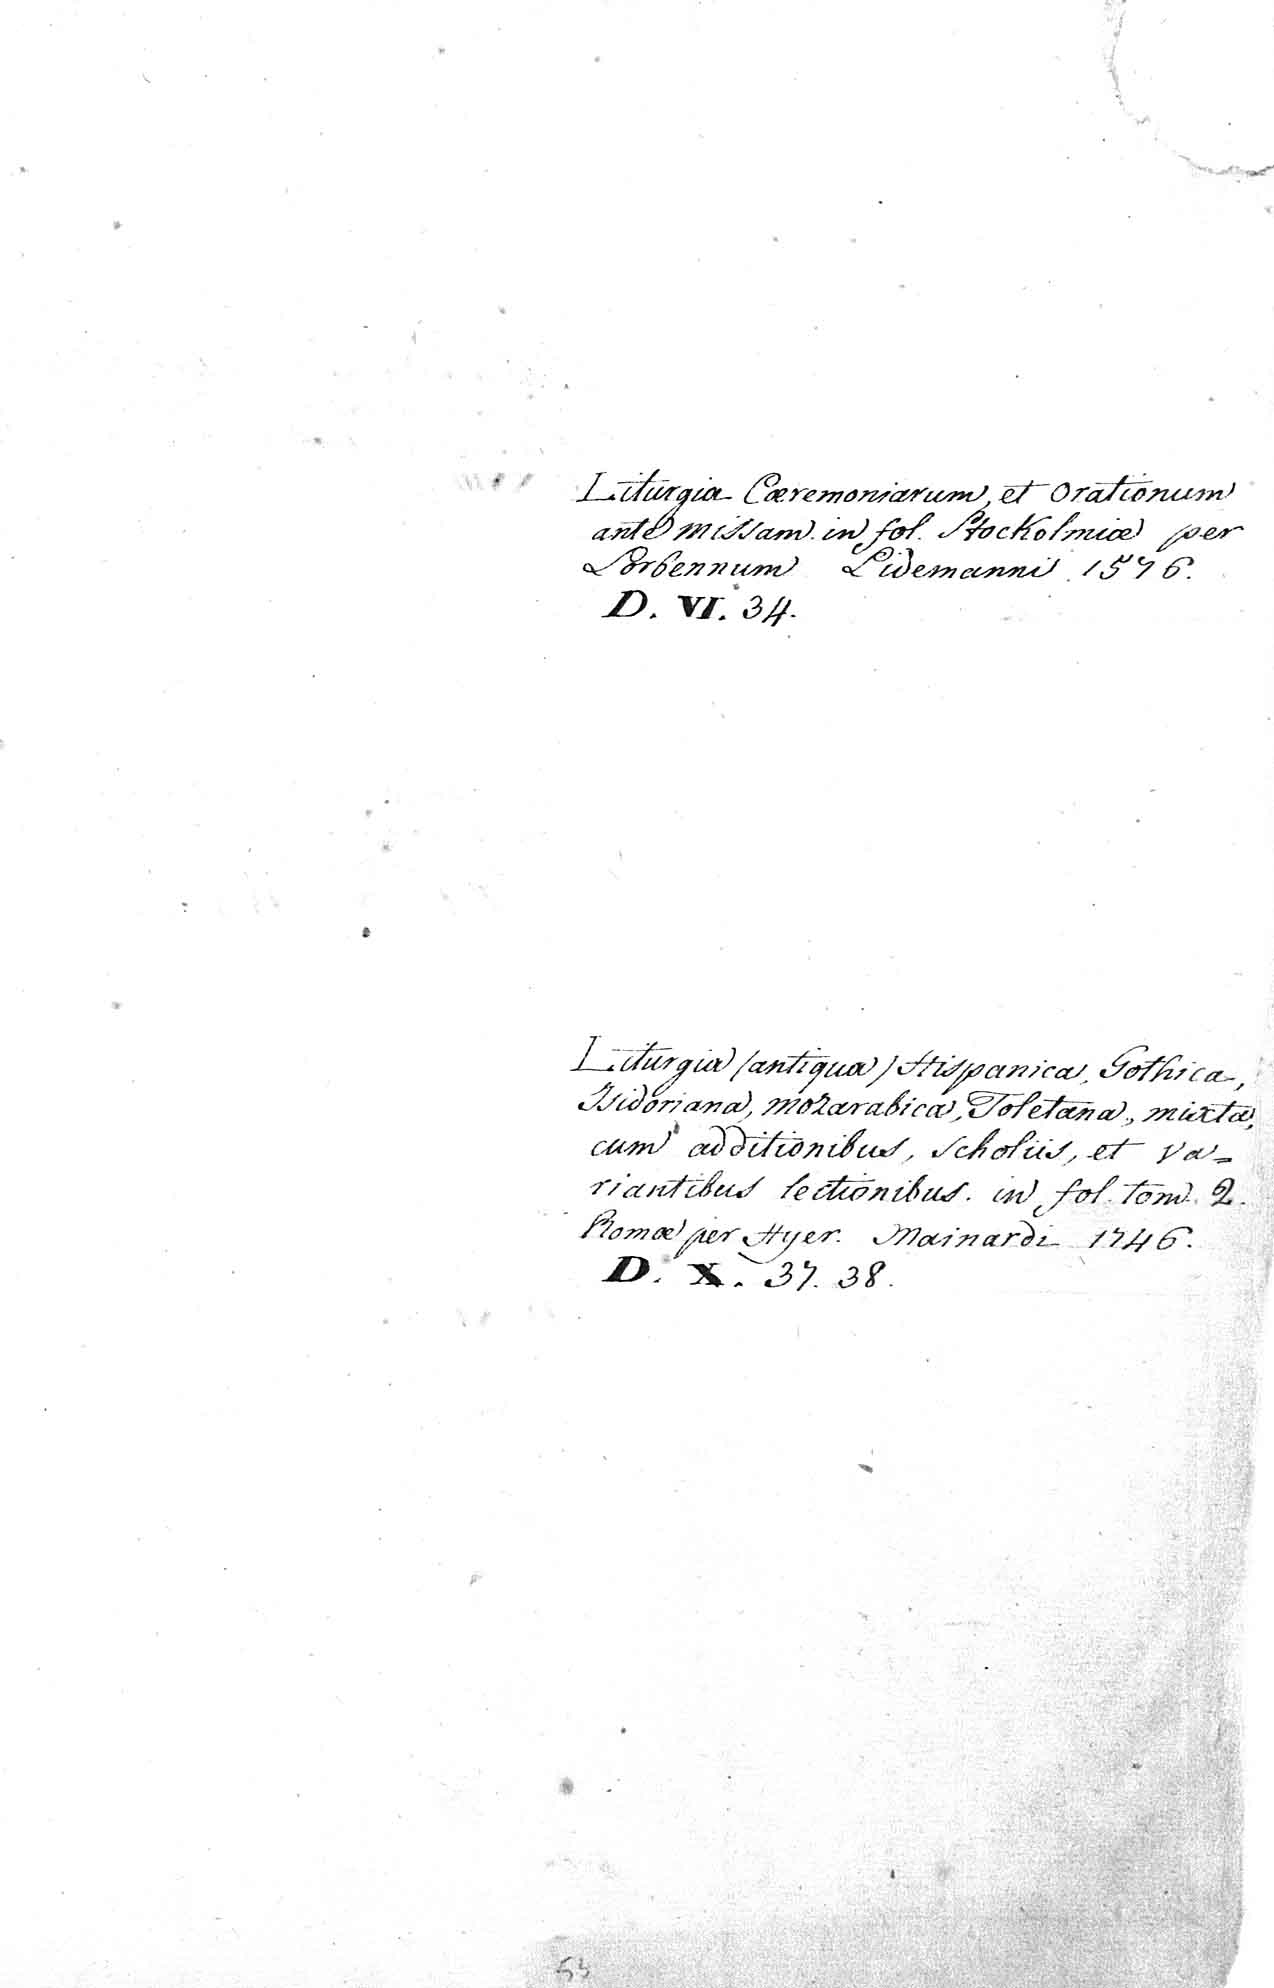 Liturgia Cæremoniarum, et Orationum
ante missam. in fol. Stockolmiæ per
Torbennum Lidemanni 1576.
D. VI. 34.
Liturgia (antiqua) Hispanica, Gothica,
Isidoriana, mozarabica, Toletana, mixta,
cum additionibus, scholiis, et va=
riantibus lectionibus. in fol. tom. 2.
Romæ per Hyer. Mainardi 1746.
D. X. 37. 38.
53